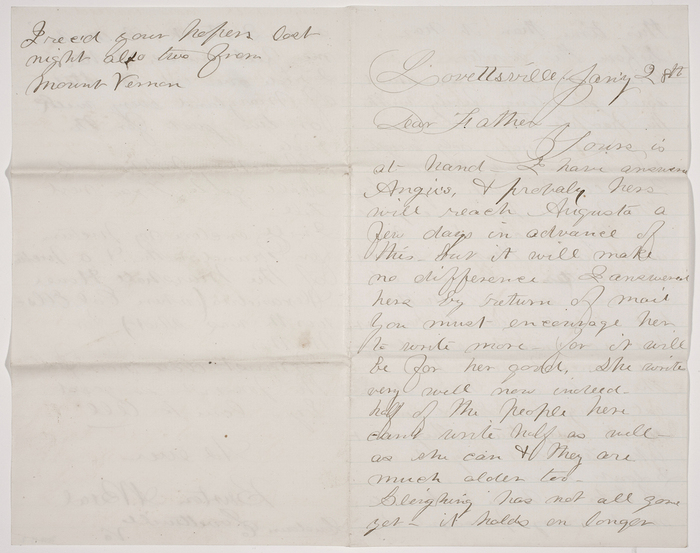 I rec'd your papers last
night also two from
Mount Vernon
Lovettsville Jan'y 28th
Dear Father
Yours is
at hand I have answered
Angies, & probaly hers
will reach Augusta a
few days in advance of
this. but it will make
no difference I answered
hers by return of mail
You must encourage her
to write more for it will
be for her good. She write
very well now indeed-
half of the people here
dant write half as well
as she can & they are
much older too-
Sleighing has not all gone
yet- it holds on longer